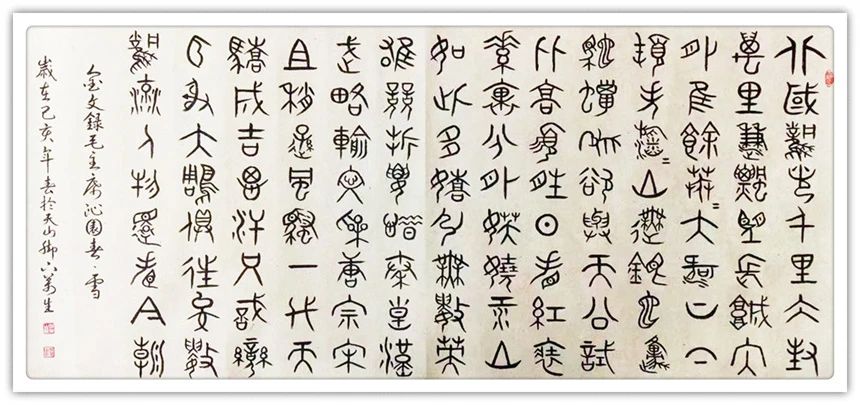 北國風光千里冰封
萬里雪飄望長城内
外惟餘莽莽大河上下
頓失滔滔山舞銀蛇原
馳蠟象欲與天公試
比高須晴日看紅裝
素裹分外妖嬈江山
如此多嬌引無數英
雄競折腰惜秦皇漢
武略輸文采唐宗宋
祖稍遜風騷一代天
驕成吉思汗只識彎
弓射大雕俱往矣數
風流人物還看今朝
金文錄毛主席沁園春·雪
歲在己亥年春於天山腳下萬生